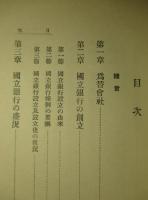 目次
緒言
第一章 爲替會社
第二章 國立銀行の創立
第一節 國立銀行設立の由來
第二節 國立銀行條例の要綱
第三節 國立銀行設立及設立後の狀況
第三章 國立銀行の盛況